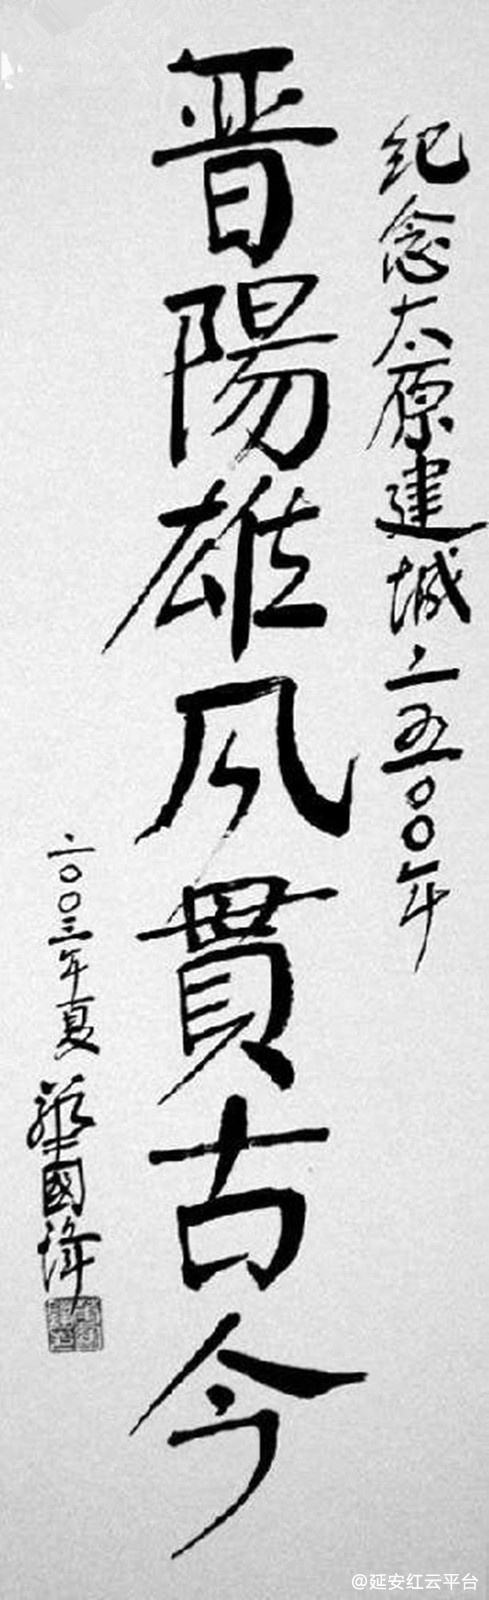 纪念太原建城二五〇〇年
晋陽雄风貫古今
二〇〇三年夏 華國鋒
@延安红云平台